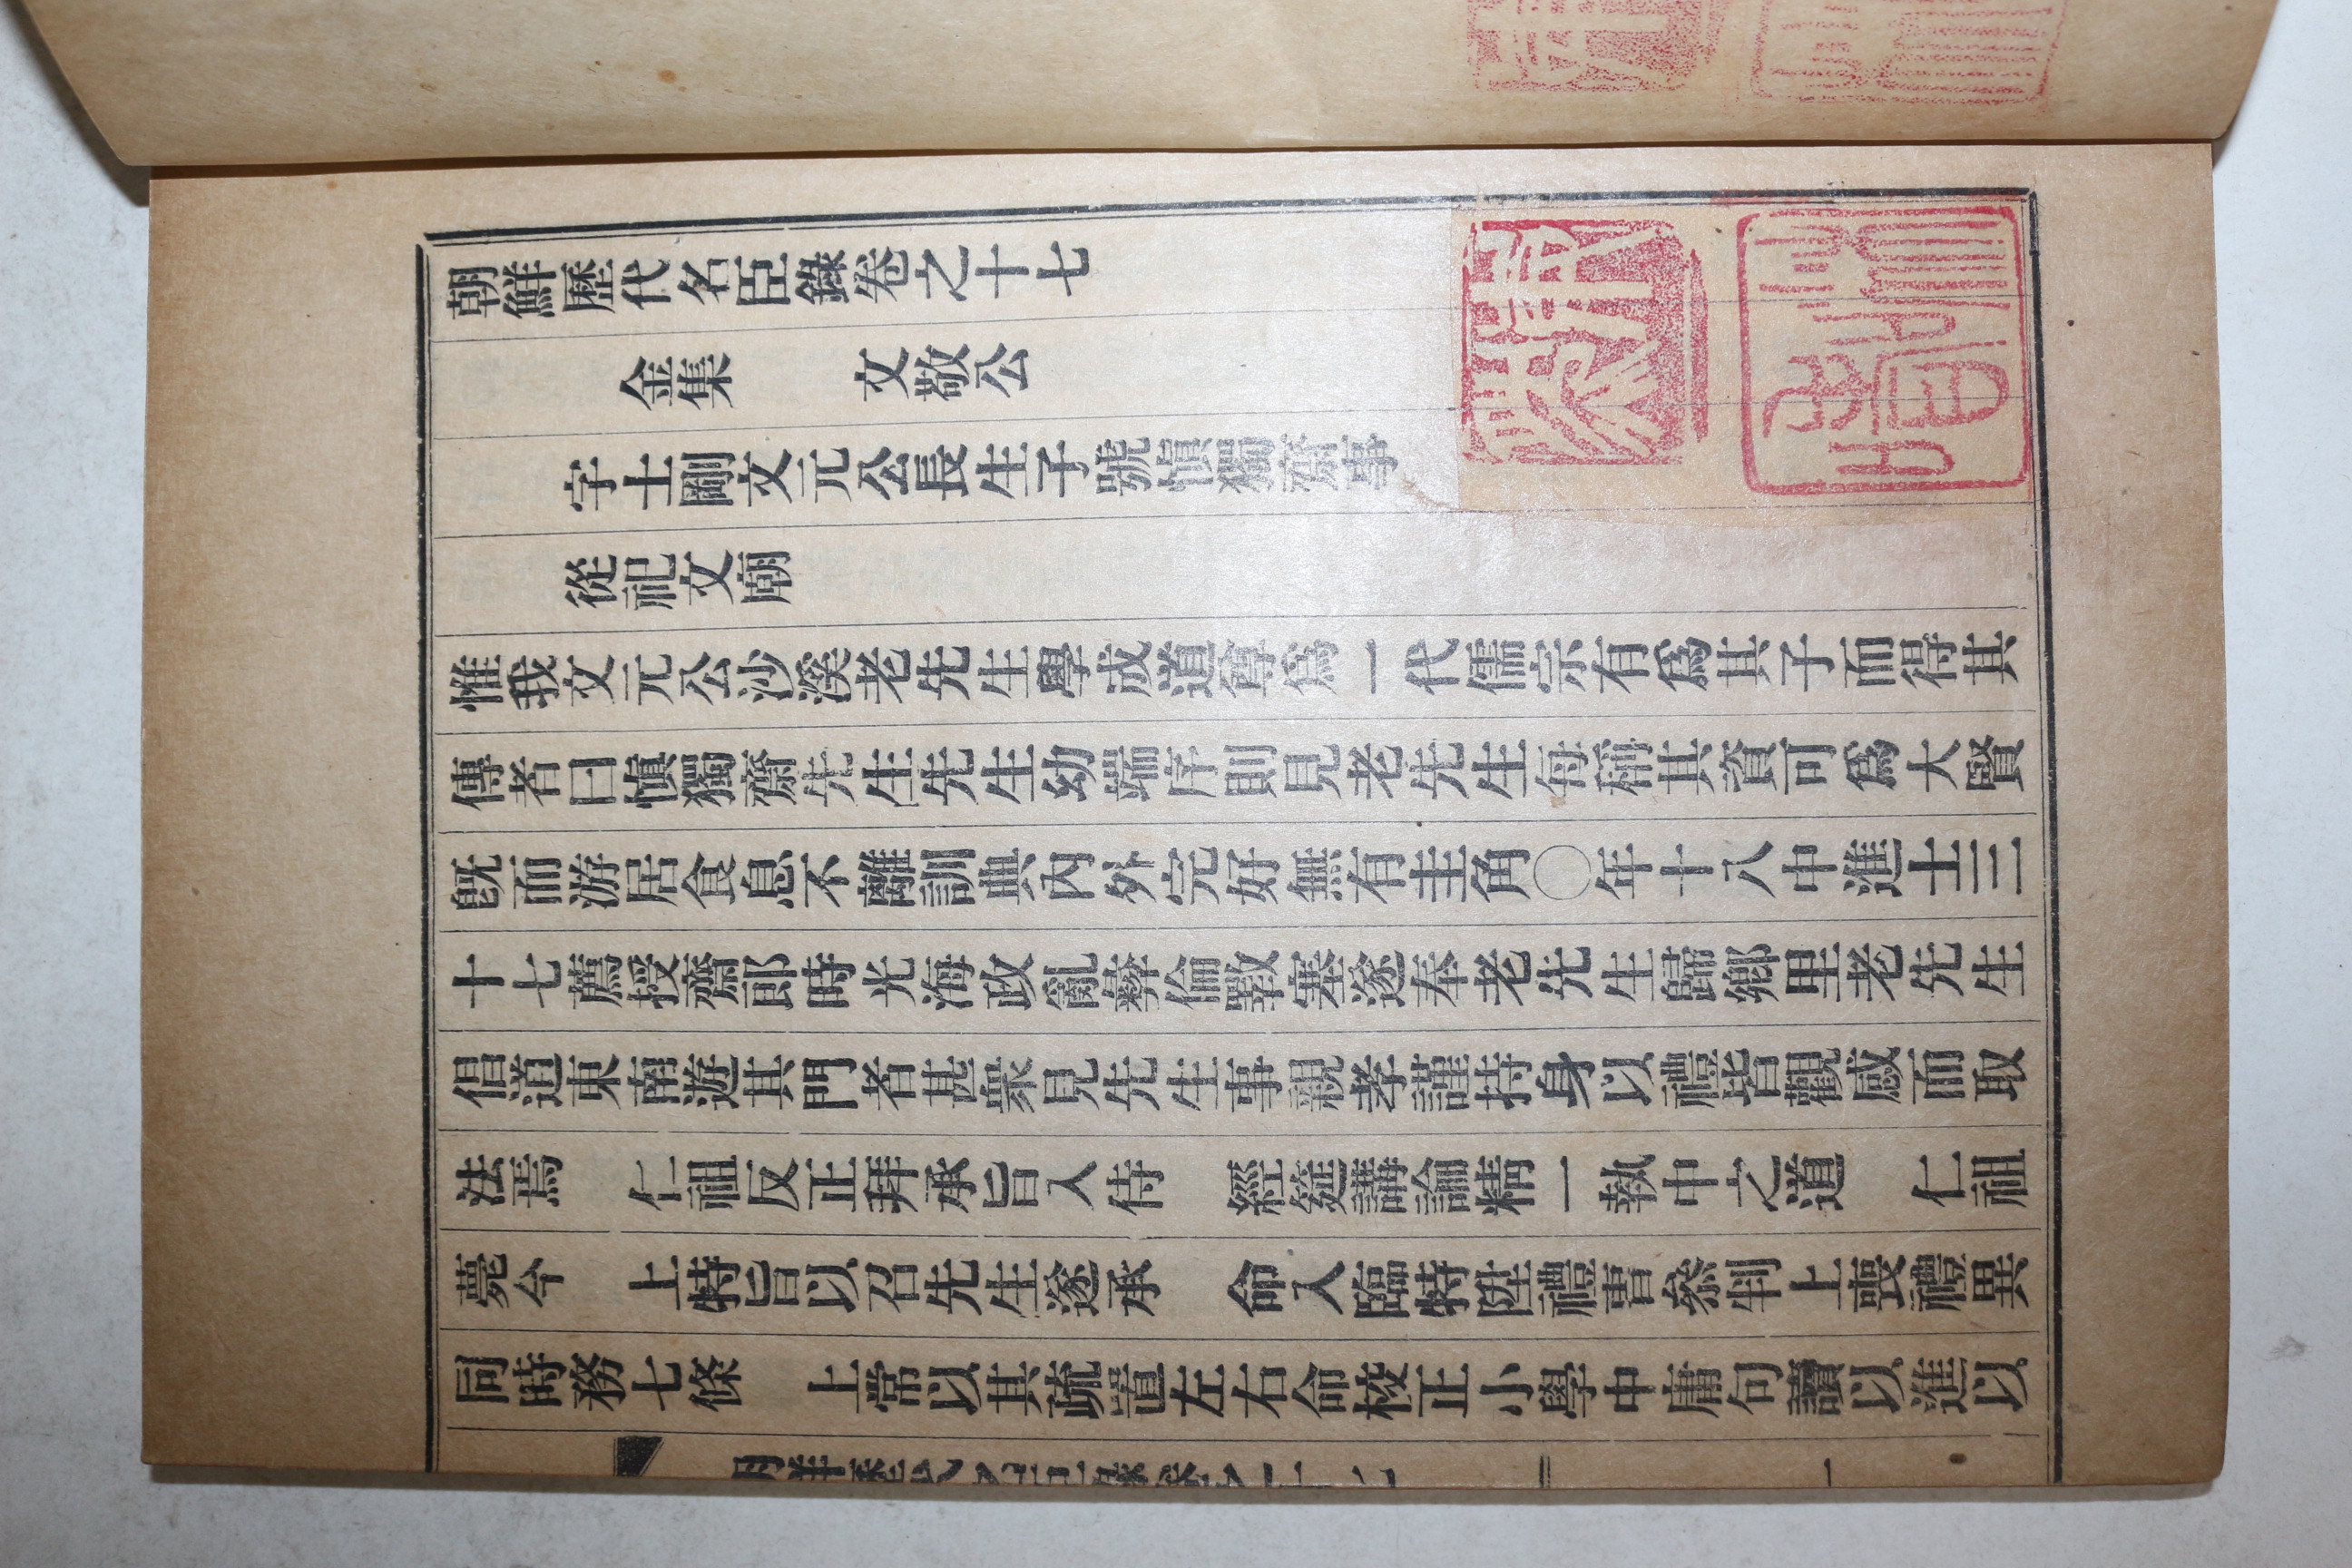 朝鮮歷代名臣錄卷之十七
金集 文敬公
字士剛文元公長生子號愼獨齋事
從祀文廟
惟我文元公沙溪老先生學成道尊爲一代儒宗有爲其子而得其
傳者曰愼獨齋先生先生幼端序則見老先生每稱其資可爲大賢
旣而游居食息不離訓典內外完好無有圭角〇年十八中進士三
十七薦授齋郎時光海政亂彝倫斁塞遂奉老先生歸鄕里老先生
倡道東南遊其門者甚衆見先生事親孝謹持身以禮皆觀感而取
法焉 仁祖反正拜承旨入侍 經筵講論精一執中之道 仁祖
薨今 上特旨以召先生遂承 命入臨特陞禮曹參判上喪禮異
同時務七條 上常以其疏置左右命校正小學中庸句讀以進以
朝鮮歷代名臣錄卷之十七 一